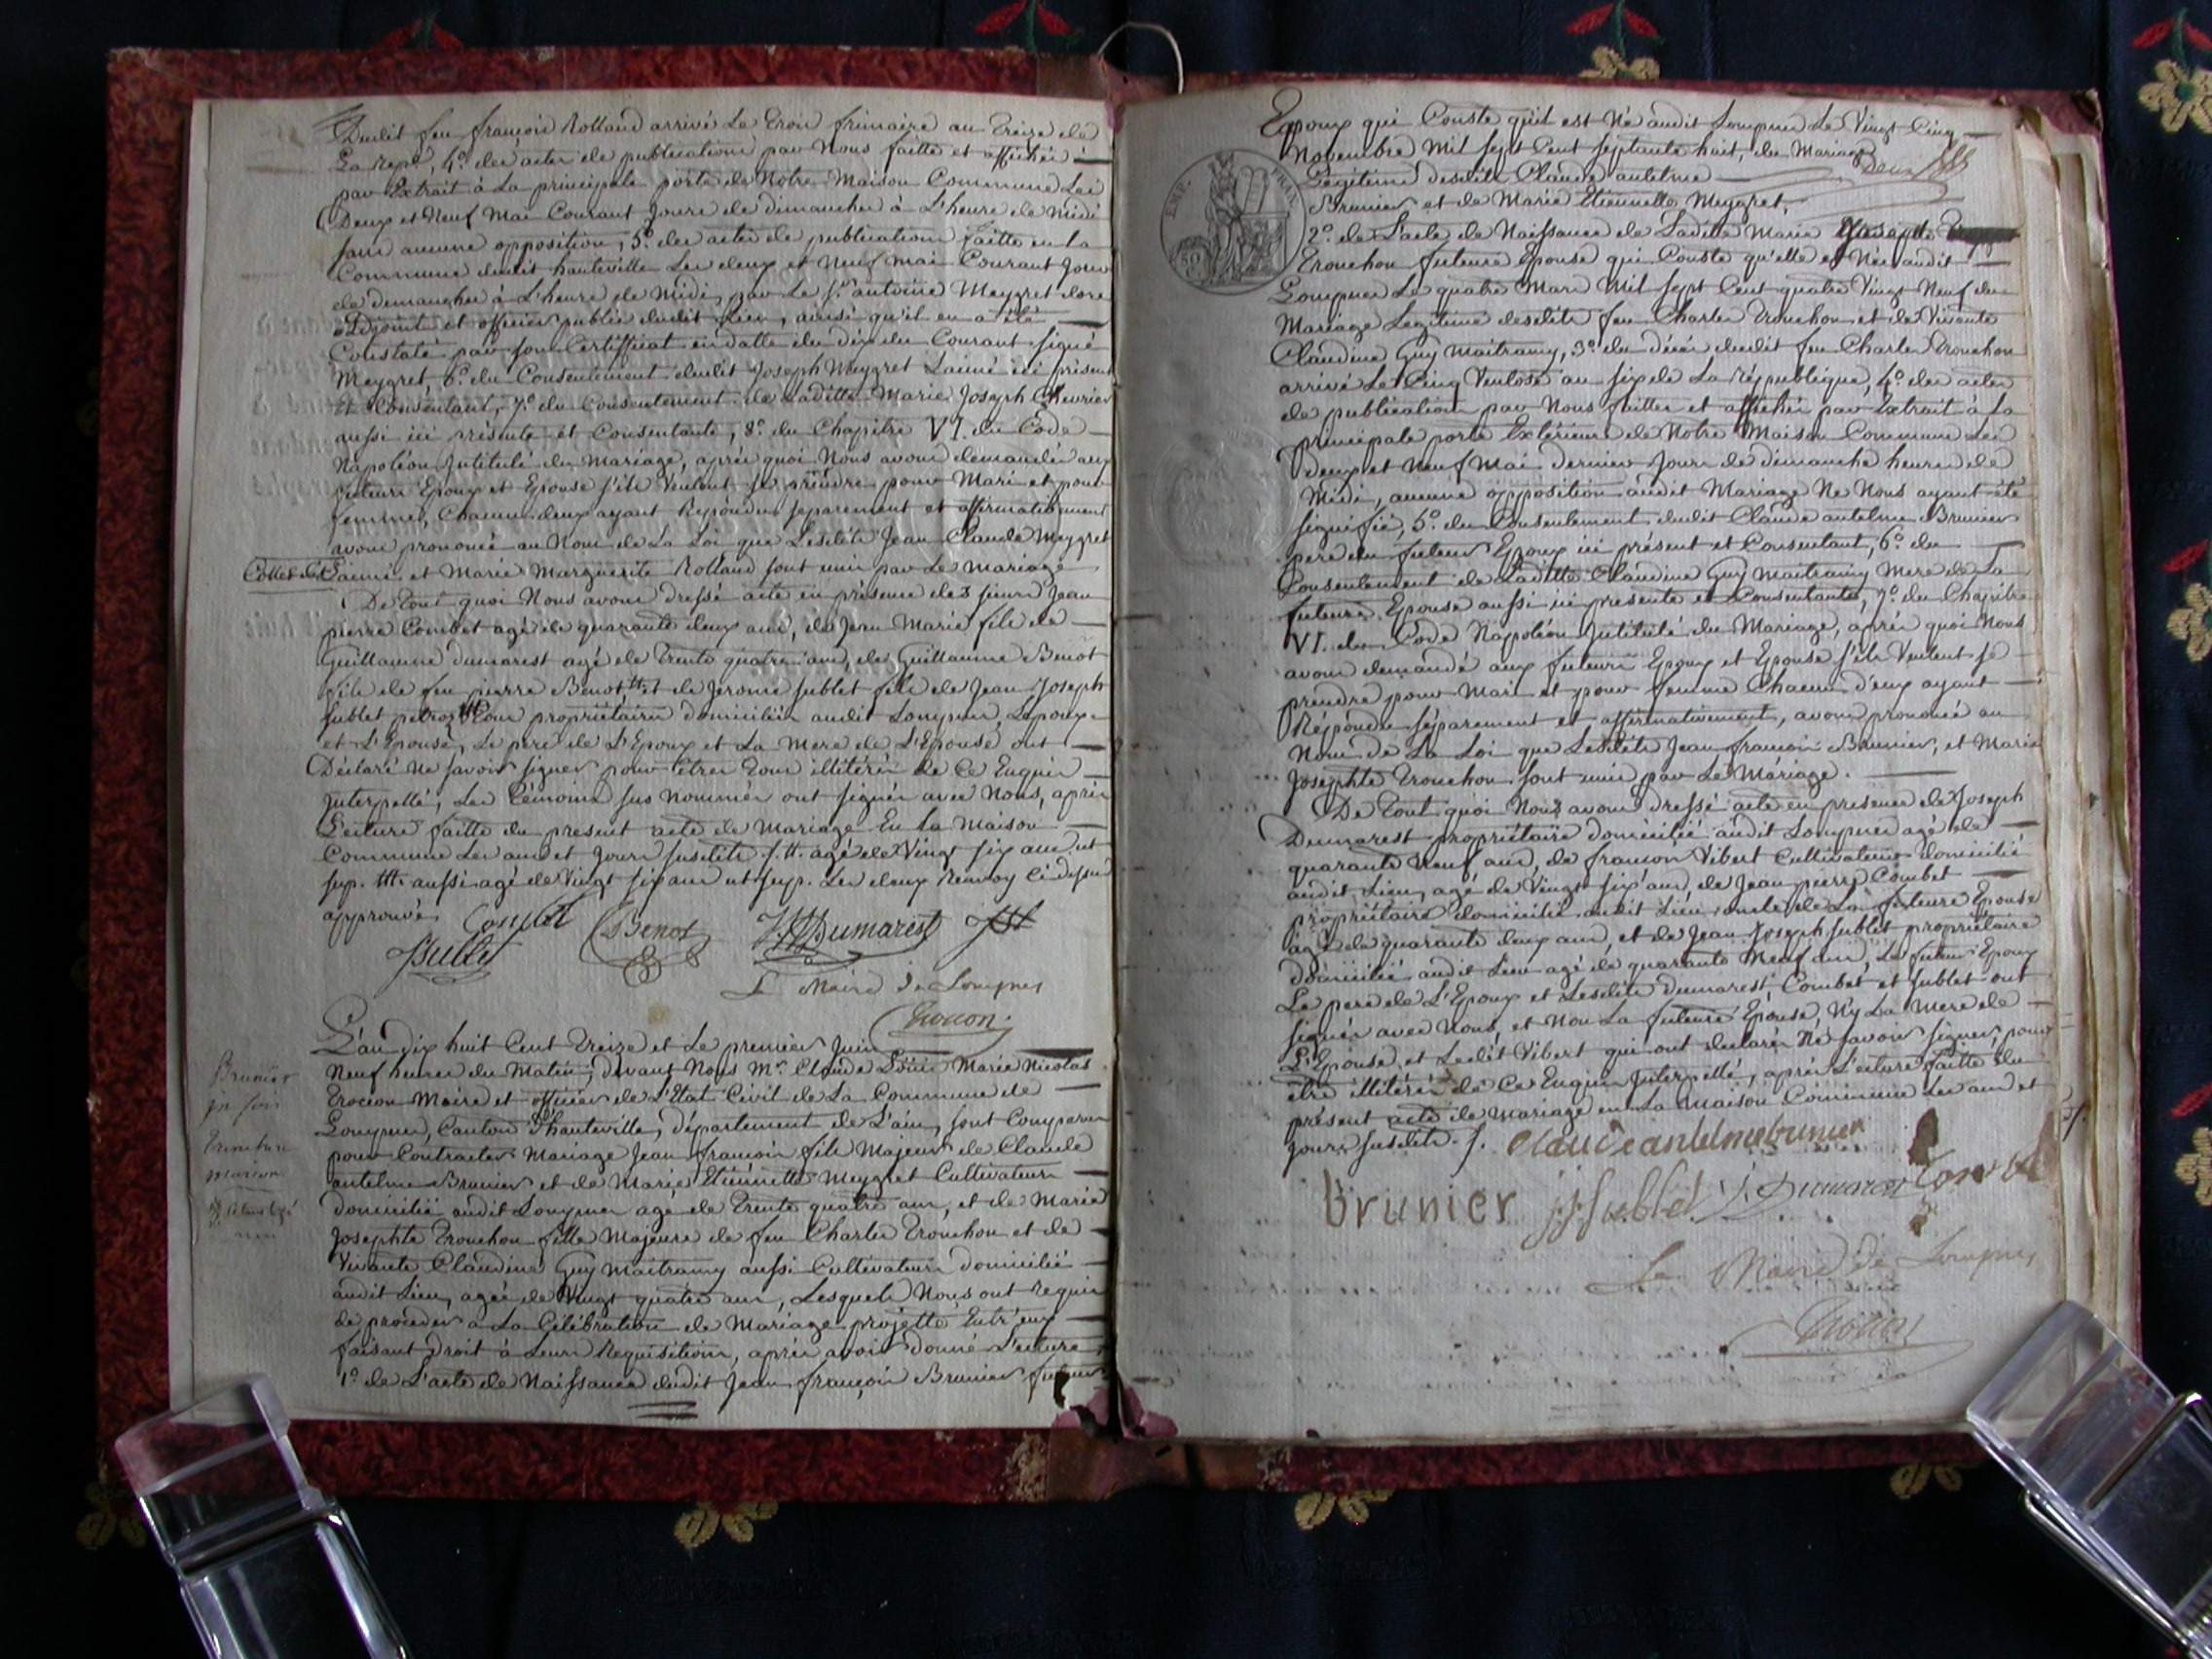 Dudit feu françois Rolland arrivé Le Trois frimaire an Treize de
La rep.e, 4.o des actes de publications par Nous faitte et affichée
par Extrait à La principale porte de Notre Maison Commune Les
Deux et Neuf Mai Courant Jours de dimanche à L'heure de Midi
sans aucune opposition, 5.o des actes de publications faitte en la
Commune dudit hauteville Les deux et Neuf mai Courant Jour
de dimanche à L'heure de Midi, par Le s.r antoine Meygret
adjoint et officier public dudit Lieu, ainsi qu'il en a été
Constaté par son Certifficat en datte du dix du Courant signé
Meygret, 6.o du Consentement dudit Joseph Meygret Lainé ici présent
et Consentant, 7.o du Consentement de Laditte Marie Joseph Chevrier
aussi ici présente et Consentante, 8.o du Chapitre VI. du Code
Napoléon Intitulé du Mariage, après quoi Nous avons demandés aux
futurs Epoux et Epouse s'ils Veulent se prendre pour Mari et pour
femme, Chacun deux ayant Repondu separement et affirmativement
avons prononcé au Nom de La Loi que Lesdits Jean Claude Meygret
Lainé et Marie Marguerite Rolland sont unis par Le Mariage
De Tout quoi Nous avons dressé acte en présence des sieurs Jean
pierre Combet agé de quarante deux ans, de Jean Marie fils de
Guillaume dumarest agé de Trente quatre ans, de Guillaume Benot
fils de feu pierre Benot et de Jerome sublet fils de Jean Joseph
sublet petroz Tous propriétaires domiciliés audit Lompnes, Lepoux
et L'Epouse, Le père de L'Epoux et La Mere de L'Epouse ont
Déclaré Ne savoir signer pour être Tous illitérés de Ce Enquis
Interpellé, Les Témoins sus Nommés ont signés avec Nous, après
Lecture faitte du present acte de Mariage En La Maison
Commune Les ans et Jours susdits. agé de Vingt six ans ut
sup. aussi agé de Vingt six ans ut sup. Les deux Renvoy Ci dessus
approuvés Combet Benot Dumarest
JSublet
Le Maire de Lompnes
Trocon
L'an dix huit Cent Treize et Le premier Juin
Neuf heures du Matin, devant Nous M.r Claude Louis Marie Nicolas
Trocon Maire et officier de L'Etat Civil de La Commune de
Lompnes, Canton d'hauteville, département de L'ain, sont Comparus
pour Contracter Mariage Jean françois fils Majeur de Claude
antelme Brunier et de Marie Etiennette Meygret Cultivateurs
domicilié audit Lompnes agé de Trente quatre ans, et de Marie
Josephte Tronchon fille Majeure de feu Charles Tronchon et de
Vivante Claudine Guy Maitramy aussi Cultivateurs domicilié
audit Lieu, agée de Vingt quatre ans, Lesquels Nous ont Requis
de procéder à La Célébration de Mariage projetté Entr'eux
faisant Droit à Leurs Requisitions, après avoir donné Lecture
1.o de L'acte de Naissance dudit Jean françois Brunier futur
Brunier
Epoux qui Conste qu'il est Né audit Lompnes Le Vingt Cinq
Novembre Mil sept Cent septante huit, du Mariage
Légitime desdits Claude antelme
Brunier et de Marie Etiennette Meygret,
EMP. FRAN.
50
2.o de L'acte de Naissance de Ladite Marie Josephte
Tronchon future Epouse qui Conste qu'elle est Née audit
Lompnes Le quatre Mars Mil sept Cent quatre Vingt Neuf du
Mariage Legitime desdits feu Charles Tronchon et de Vivante
Claudine Guy Maitramy, 3.o du décès dudit feu Charles Tronchon
arrivé Le Cinq Ventose an six de La République, 4.o des actes
de publication par Nous faittes et affichés par Extrait à La
principale porte Extérieure de Notre Maison Commune Les
deux et Neuf Mai dernier Jours de dimanche heure de
Midi, aucune opposition audit Mariage Ne Nous ayant été
signifié, 5.o du Consentement dudit Claude antelme Brunier
pere du futur Epoux ici présent et Consentant, 6.o du
Consentement de Laditte Claudine Guy Maitramy Mere de La
future Epouse aussi ici presente et Consentante, 7.o du Chapitre
VI. du Code Napoléon Intitulé du Mariage, après quoi Nous
avons demandé aux futurs Epoux et Epouse s'ils Veulent se
prendre pour Mari et pour femme Chacun d'eux ayant
Répondu séparement et affirmativement, avons prononcé au
Nom de La Loi que Lesdits Jean françois Brunier, et Marie
Josephte Tronchon sont unis par Le Mariage.
De Tout quoi Nous avons dressé acte en presence de Joseph
Dumarest propriétaire domicilié audit Lompnes agé de
quarante Neuf ans, de françois Vibert Cultivateur domicilié
audit Lieu, agé de Vingt six ans, de Jean pierre Combet
propriétaire domicilié audit Lieu, oncle de La future Epouse
agé de quarante deux ans, et de Jean Joseph sublet propriétaire
domicilié audit Lieu agé de quarante Neuf ans, Le futur Epoux
Le pere de L'Epoux et Lesdits dumarest, Combet et sublet ont
signés avec Nous, et Non La future Epouse, Ny La Mere de
L'Epouse, et Ledit Vibert qui ont déclarés Ne savoir signer, pour
etre illitérés de Ce Enquis Interpellé, après Lecture faitte du
présent acte de Mariage en La Maison Commune Les ans et
Jours susdits. claude antelme brunier
Brunier jjsublet J. Dumarest Combet
Le Maire de Lompnes
Trocon